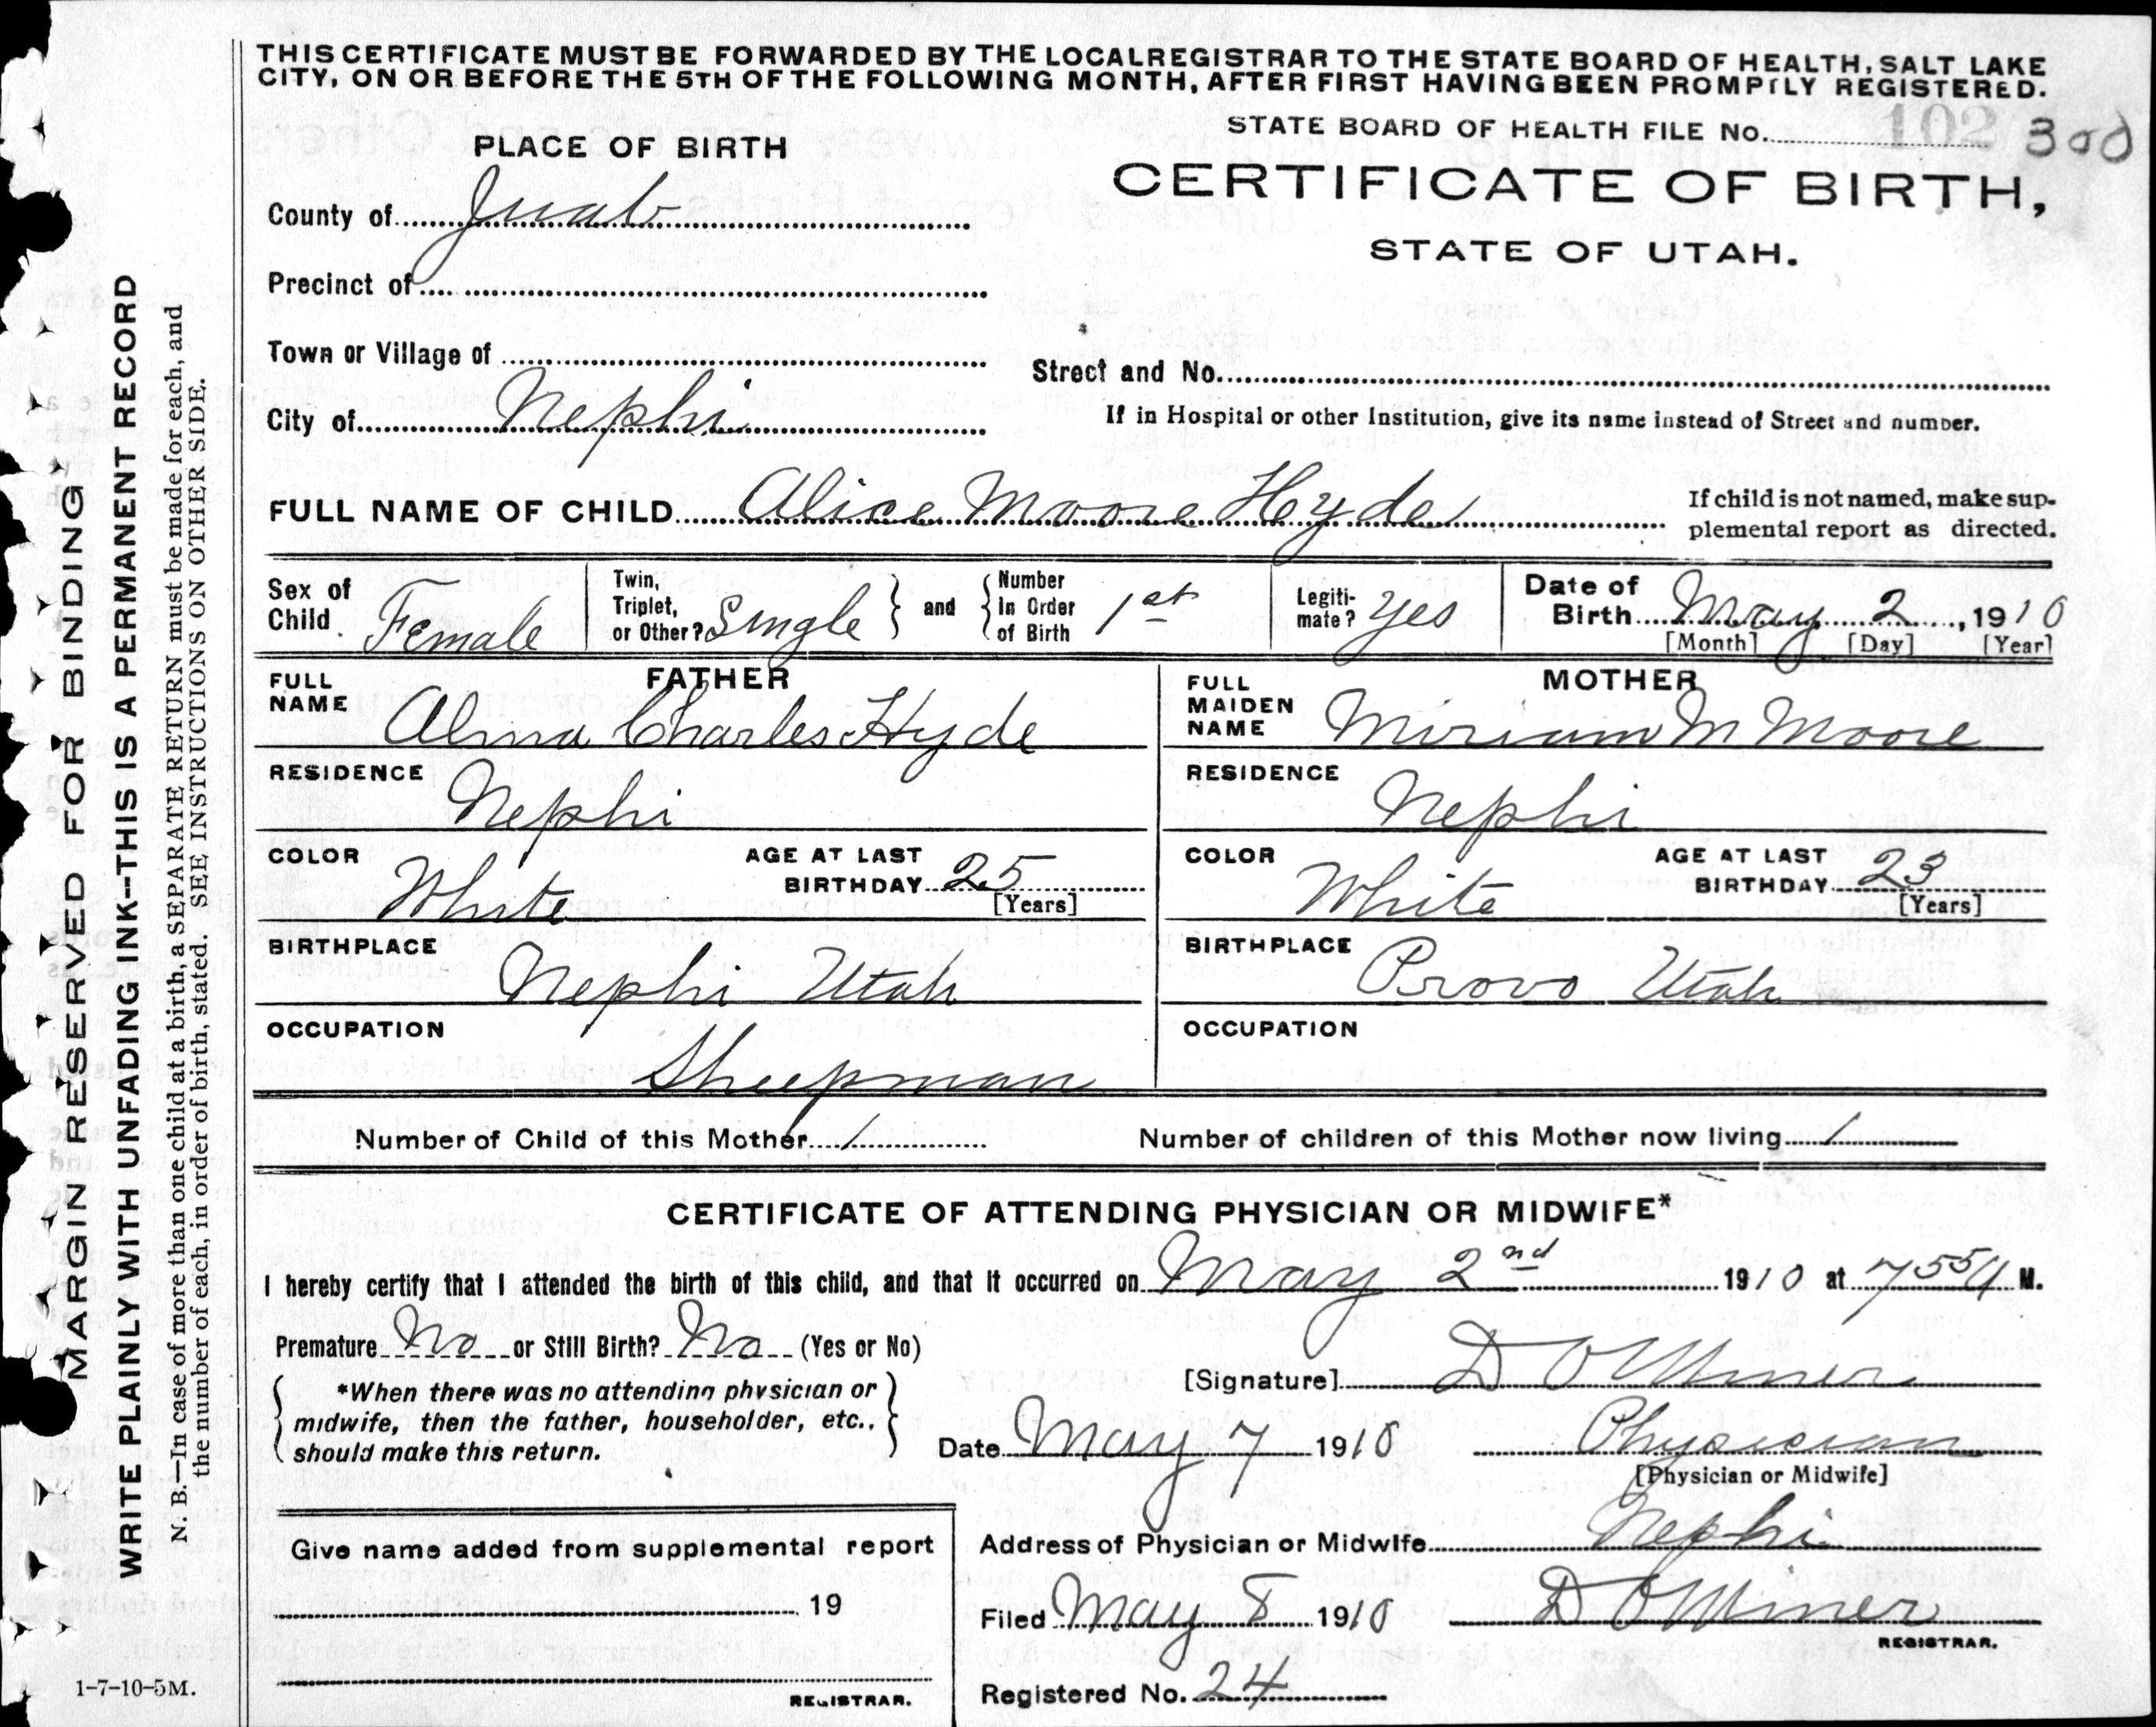 THIS CERTIFICATE MUST BE FORWARDED BY THE LOCAL REGISTRAR TO THE STATE BOARD OF HEALTH, SALT LAKE
CITY, ON OR BEFORE THE 5TH OF THE FOLLOWING MONTH, AFTER FIRST HAVING BEEN PROMPTLY REGISTERED.
STATE BOARD OF HEALTH FILE No. 102 300
PLACE OF BIRTH
CERTIFICATE OF BIRTH,
STATE OF UTAH.
County of Juab
Precinct of
Town or Village of
Street and No.
City of Nephi
If in Hospital or other Institution, give its name instead of Street and number.
FULL NAME OF CHILD Alice Moore Hyde
If child is not named, make sup-
plemental report as directed.
Sex of Child Female
Twin, Triplet, or Other? Single
and Number In Order of Birth 1st
Legiti-mate? Yes
Date of Birth May 2, 1910
[Month] [Day] [Year]
FATHER
FULL NAME Alma Charles Hyde
RESIDENCE
Nephi
COLOR White
AGE AT LAST BIRTHDAY 25
[Years]
BIRTHPLACE
Nephi Utah
OCCUPATION
Sheepman
MOTHER
FULL MAIDEN NAME Miriam M Moore
RESIDENCE
Nephi
COLOR White
AGE AT LAST BIRTHDAY 23
[Years]
BIRTHPLACE
Provo Utah
OCCUPATION
Number of Child of this Mother 1
Number of children of this Mother now living 1
CERTIFICATE OF ATTENDING PHYSICIAN OR MIDWIFE*
I hereby certify that I attended the birth of this child, and that it occurred on May 2nd 1910 at 7 55 a M.
Premature No or Still Birth? No (Yes or No)
*When there was no attending physician or
midwife, then the father, householder, etc.,
should make this return.
[Signature] D O Miner
Date May 7 1910
Physician
[Physician or Midwife]
Address of Physician or Midwife Nephi
Filed May 8 1910
D O Miner
REGISTRAR.
Registered No. 24
Give name added from supplemental report
19
REGISTRAR.
1-7-10-5M.
MARGIN RESERVED FOR BINDING
WRITE PLAINLY WITH UNFADING INK--THIS IS A PERMANENT RECORD
N. B.—In case of more than one child at a birth, a SEPARATE RETURN must be made for each, and
the number of each, in order of birth, stated. SEE INSTRUCTIONS ON OTHER SIDE.